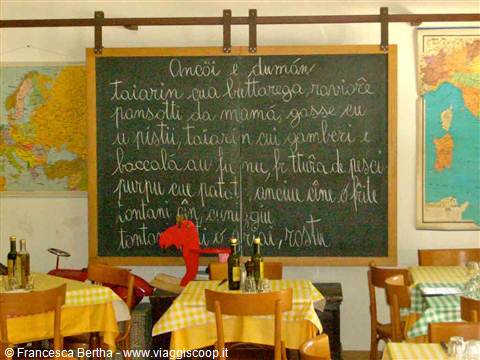 Ancöi e dumán
taiarin cua buttarega, raviore
pansotti da mamá, gasse cu
u pistü, taiarin cui gamberi e
baccalà au fu nu, frittüra de pesci
purpu cue patat , anciue cine o frite
tantu ti o ai, rostu
© Francesca Bertha - www.viaggiscoop.it